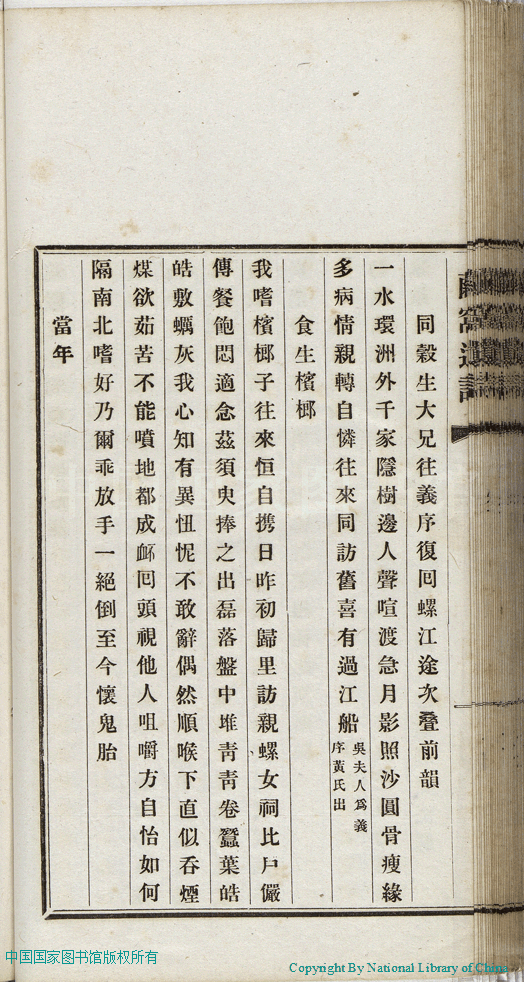 同穀生大兄往義序復回螺江途次疊前韻
一水環洲外千家隱樹邊人聲喧渡急月影照沙圓骨瘦緣
多病情親轉自憐往來同訪舊喜有過江船吳夫人爲義
序黃氏出
食生檳榔
我嗜檳榔子往來恒自携日昨初歸里訪親螺女祠比戶儼
傳餐飽悶適念茲須臾捧之出磊落盤中堆靑靑卷蠶葉皓
皓敷蠣灰我心知有異忸怩不敢辭偶然順喉下直似吞煙
煤欲茹苦不能噴地都成衃回頭視他人咀嚼方自怡如何
隔南北嗜好乃爾乖放手一絕倒至今懷鬼胎
當年
中国国家图书馆版权所有
Copyright By National Library of China